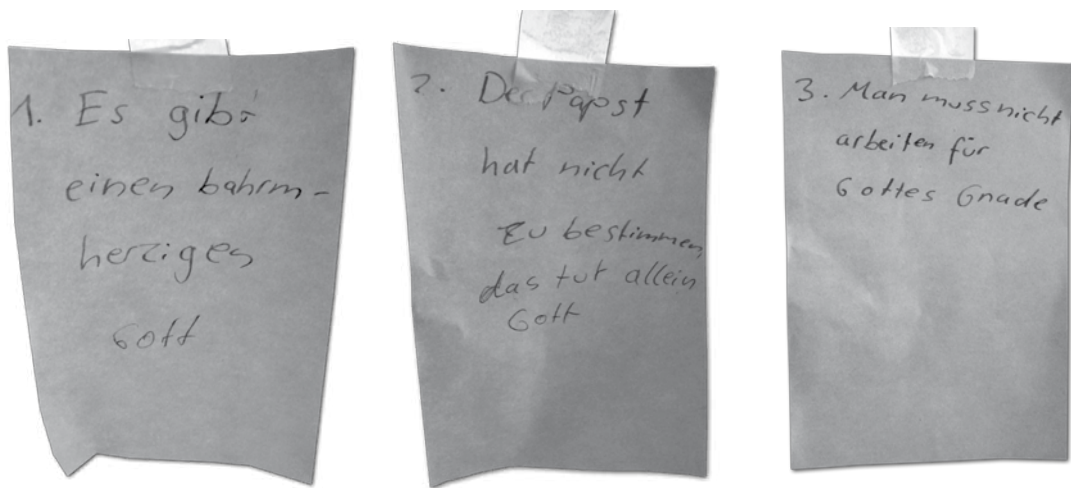 1. Es gibt
einen bahrm-
herziges
Gott
2. Der Papst
hat nicht
zu bestimmen,
das tut allein
Gott
3. Man muss nicht
arbeiten für
Gottes Gnade